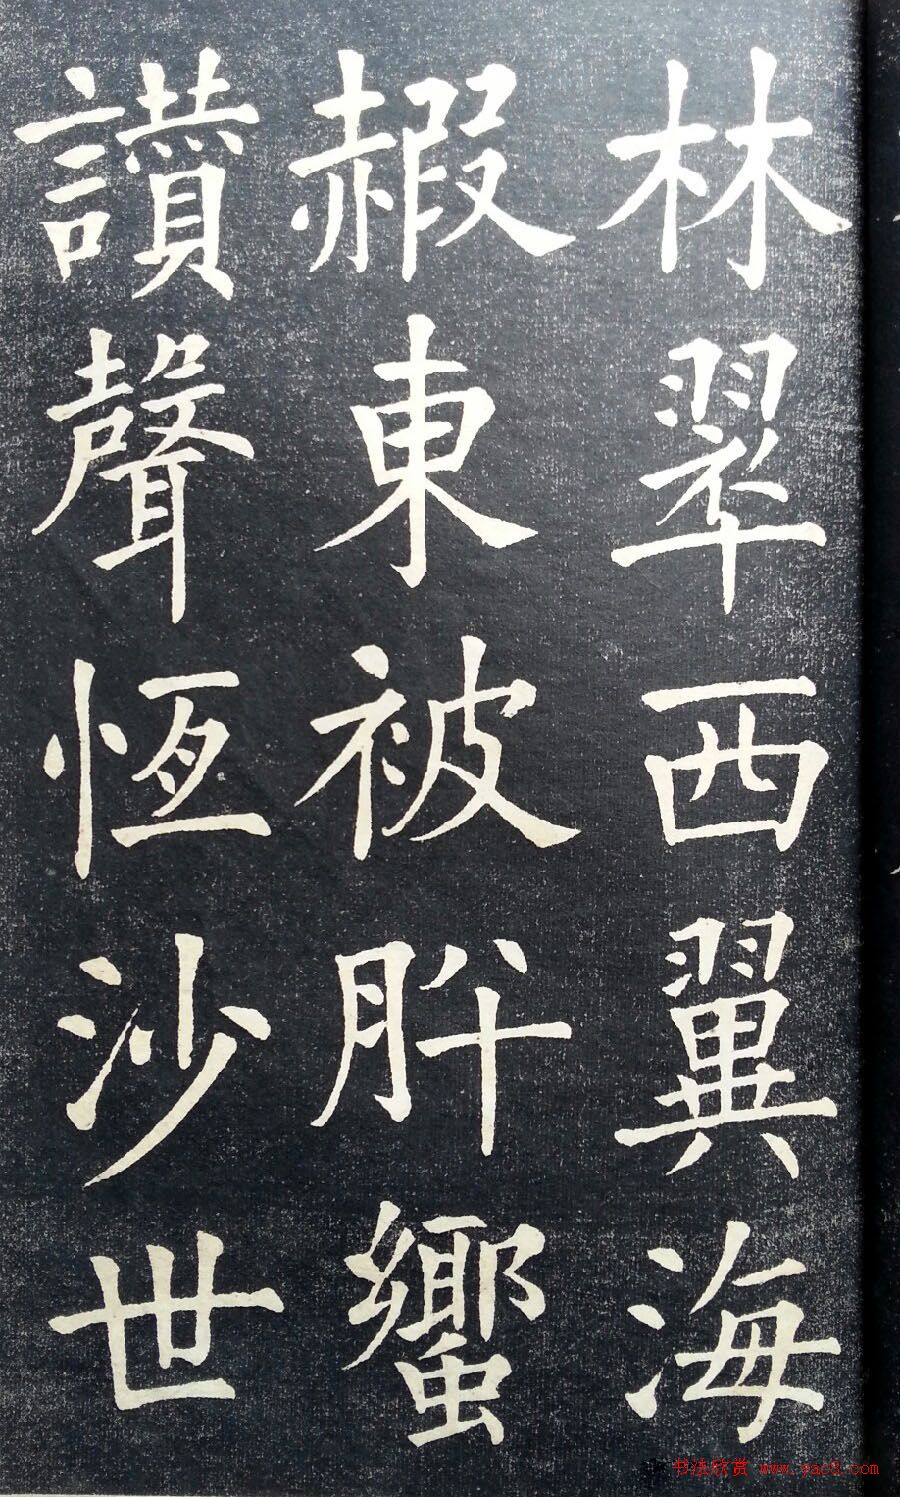 林翠西翼海
赮東被肸蠁
讃聲恆沙世
书法欣赏 www.yac8.com